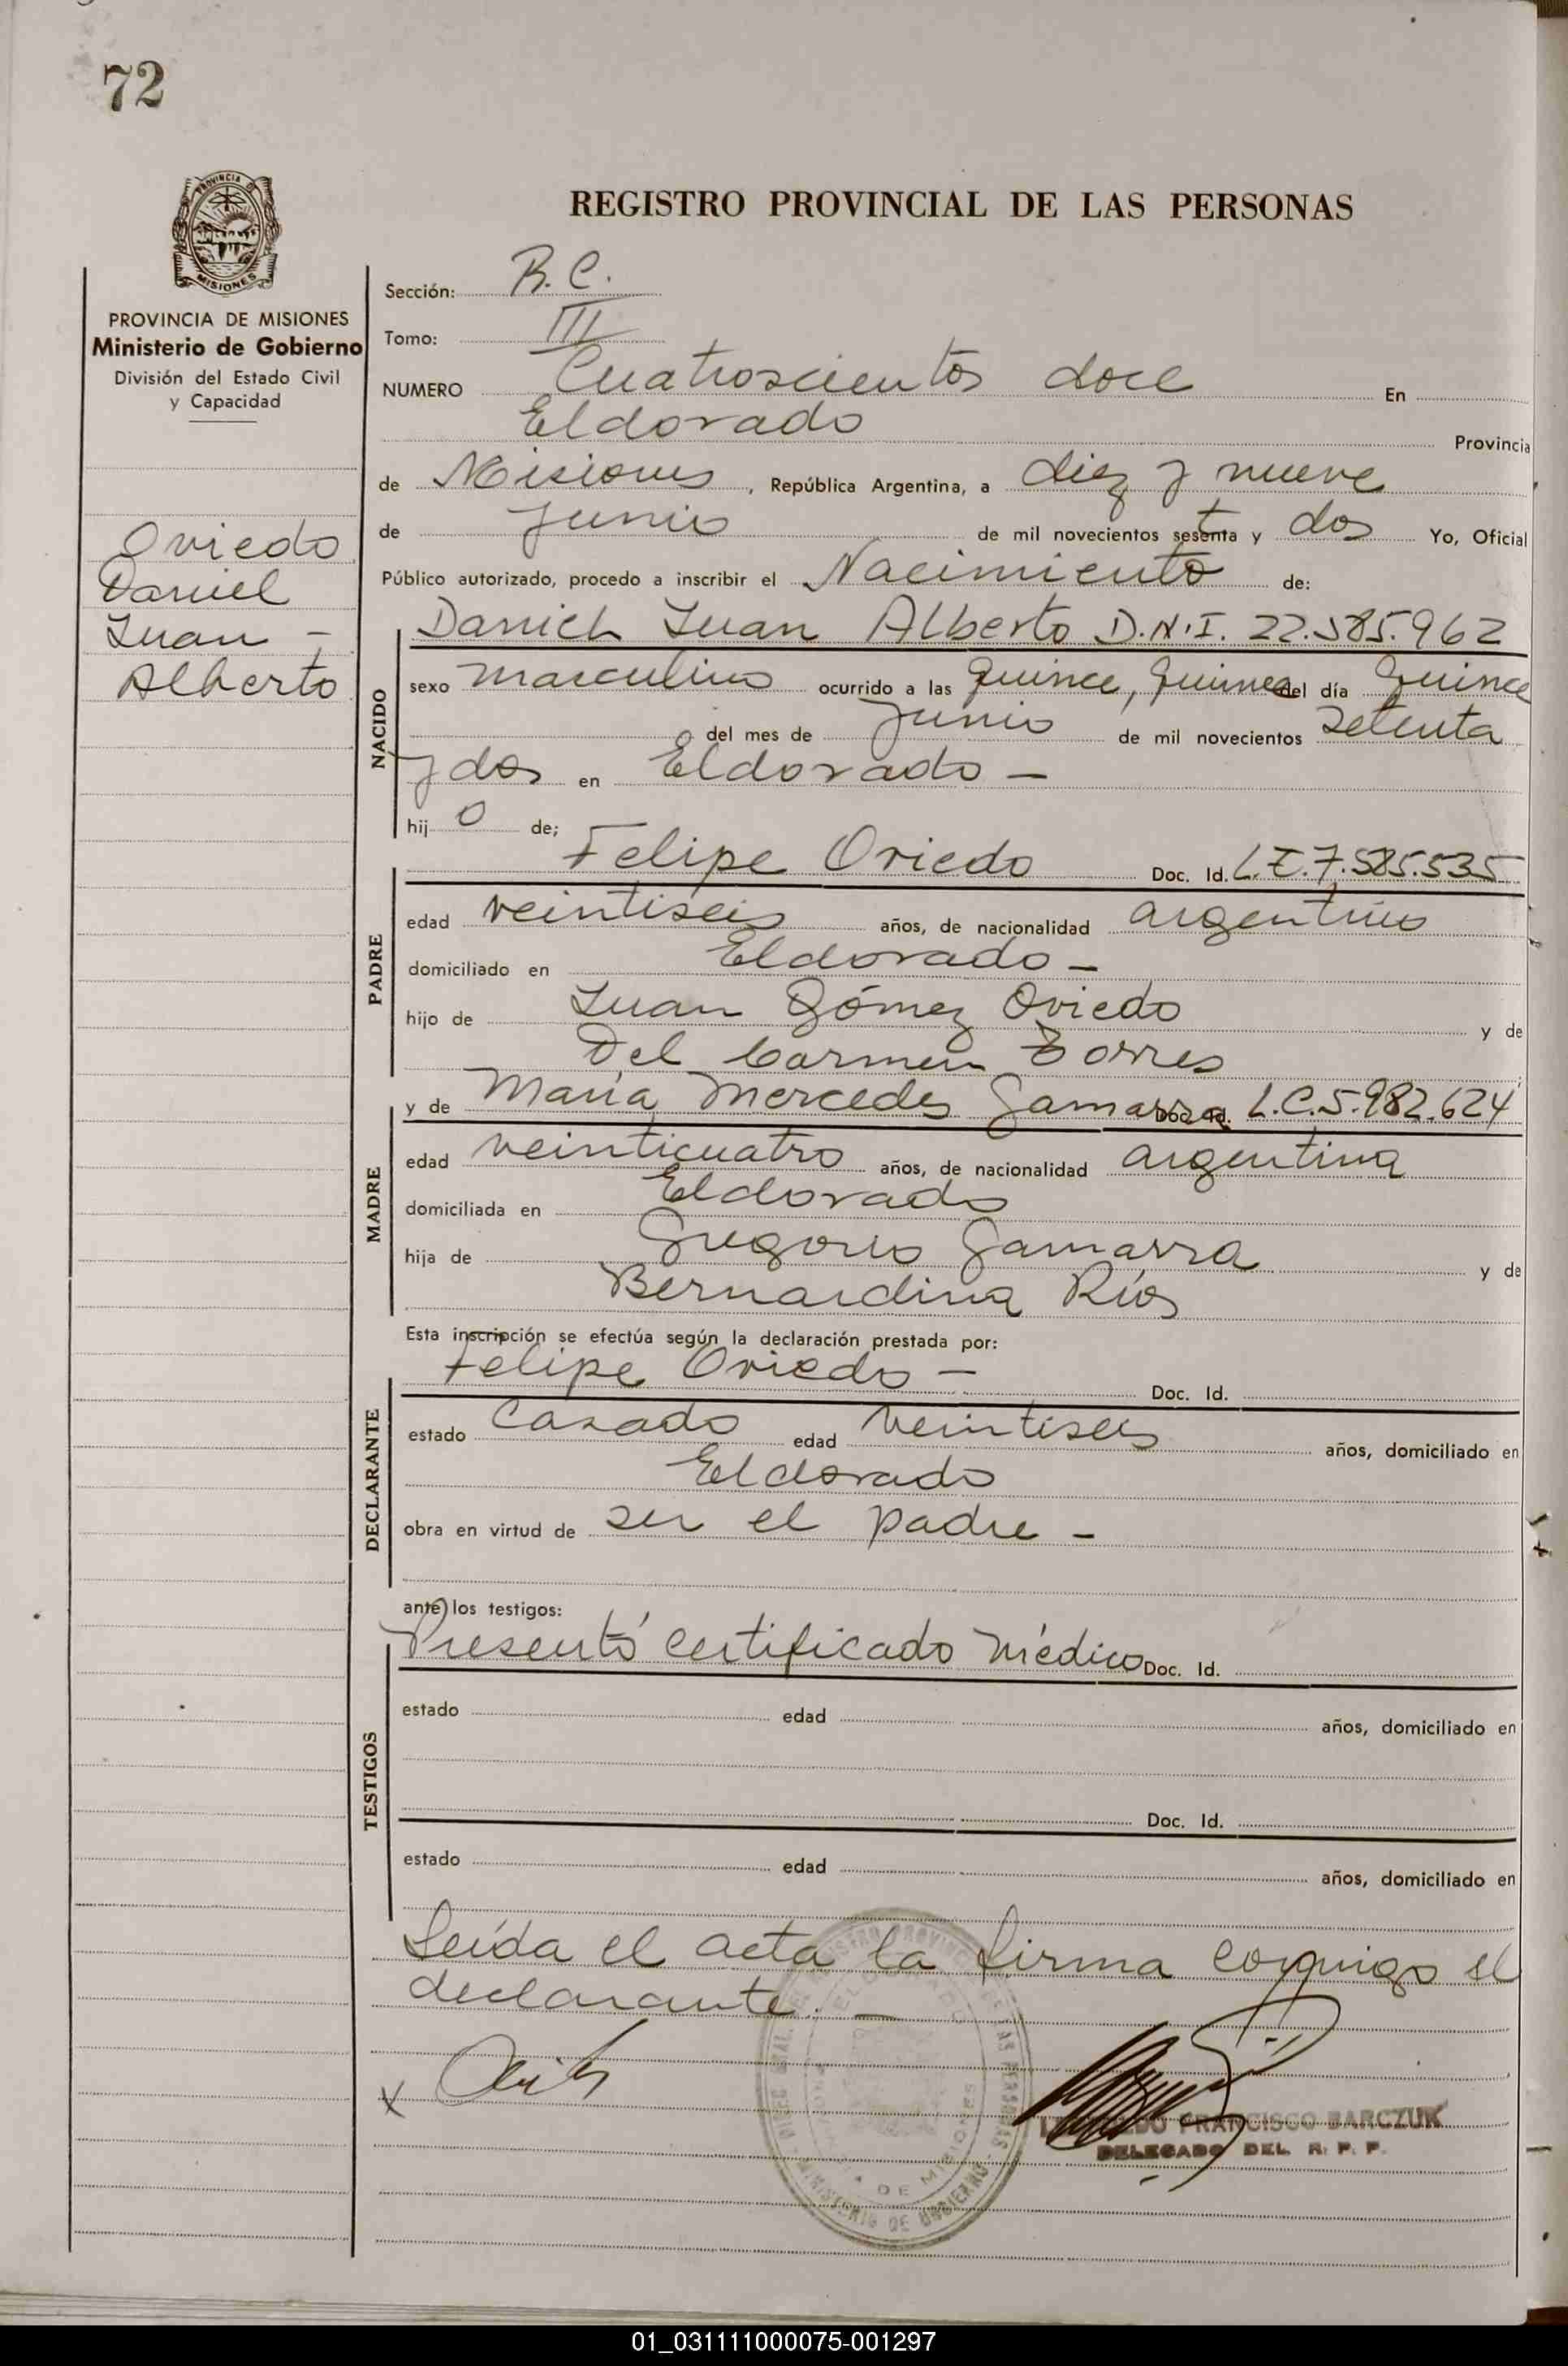 72
PROVINCIA DE
MISIONES
REGISTRO PROVINCIAL DE LAS PERSONAS
PROVINCIA DE MISIONES
Ministerio de Gobierno
División del Estado Civil
y Capacidad
Oviedo
Daniel
Juan -
Alberto
Sección: R. C.
Tomo: III
NUMERO Cuatroscientos doce En
Eldorado Provincia
de Misiones, República Argentina, a diez y nueve
de Junio de mil novecientos setenta y dos Yo, Oficial
Público autorizado, procedo a inscribir el Nacimiento de:
NACIDO
Daniel Juan Alberto D.N.I. 22.585.962
sexo masculino ocurrido a las quince, quince del día quince
del mes de Junio de mil novecientos setenta
y dos en Eldorado -
hij o de;
PADRE
Felipe Oviedo Doc. Id. L.E.7.585.535
edad veintiseis años, de nacionalidad argentino
domiciliado en Eldorado -
hijo de Juan Gómez Oviedo y de
Del Carmen Torres
MADRE
y de María Mercedes Gamarra Doc. Id. L.C.5.982.624
edad veinticuatro años, de nacionalidad argentina
domiciliada en Eldorado
hija de Gregorio Gamarra y de
Bernardina Ríos
Esta inscripción se efectúa según la declaración prestada por:
DECLARANTE
Felipe Oviedo - Doc. Id.
estado casado edad veintiseis años, domiciliado en
Eldorado
obra en virtud de ser el padre -
ante los testigos:
TESTIGOS
Presentó certificado médico Doc. Id.
estado edad años, domiciliado en
Doc. Id.
estado edad años, domiciliado en
Leída el acta la firma conmigo el
declarante. -
x
FRANCISCO BARCZUK
DELEGADO DEL R. P. P.
MINISTERIO DE GOBIERNO
DE MISIONES
01_031111000075-001297